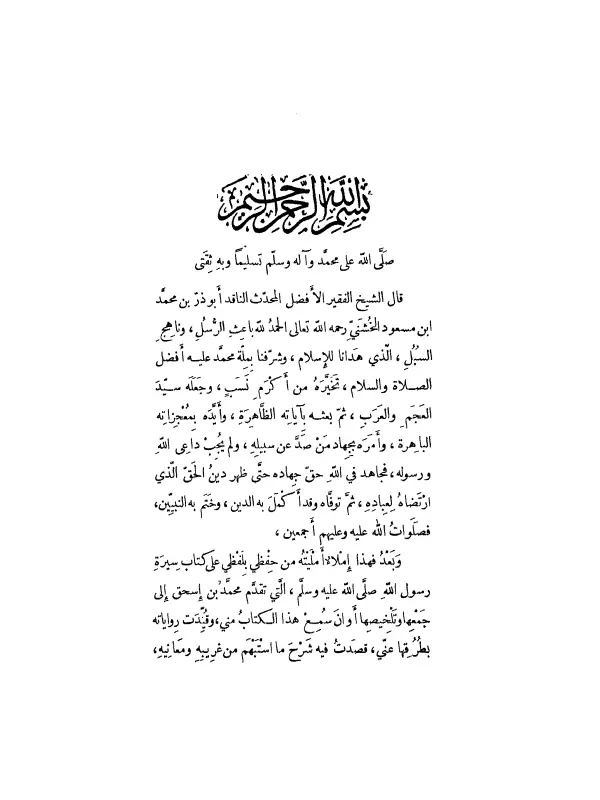 بسم الله الرحمن الرحيم
صَلَّى اللّه على محمَّد وآله وسلّم تسليمًا وبهِ ثِقَتى
قال الشيخ الفقير الأفضل المحدّث الناقد أبو ذرّ بن محمَّد
ابن مسعود الخُشَنيّ رحمه اللّه تعالى الحمدُ للّه باعِثِ الرُّسُلِ ، وناهِجِ
السُبُلِ ، الّذي هَدانا للإسلام ، وشرّفنا بِمِلّة محمَّد عليـه أفضل
الصـلاة والسلام ، تَخَيَّرَهُ من أَكْرَمِ نَسَبٍ ، وجَعَلَه سيّـدَ
العَجَمِ والعَرَبِ ، ثمّ بعثـه بآياتِه الظَّاهِرةِ ، وأَيَّدَه بِمُعْجِزاتِه
الباهرة ، وأَمرَه بجِهادِ مَنْ صَدَّ عن سبيلِهِ ، ولم يُجِبْ داعِىَ اللّهِ
ورسوله ، فجاهد في اللّهِ حقّ جِهاده حتَّى ظهر دينُ الحَقّ الّذي
ارْتَضاهُ لِعبادِهِ ، ثمَّ توفّاه وقد أَكْمَلَ به الدين ، وخَتَم به النبيّين،
فصلَواتُ اللّه عليه وعليهم أَجمعين ،
وَبَعْدُ فهذا إمْلاءٌ أَمْلَيْتُه من حِفْظي بِلَفْظي على كتاب سِيرَةِ
رسول اللّهِ صلَّى اللّه عليه وسلَّم ، الَّتي تقدَّم محمَّدُ بن إسحق إلى
جَمْعِها وتَلْخِيصِها أَوانَ سُمِـعَ هذا الـكتابُ مني، وقُيِّدَت رِواياته
بطُرُقِها عنّي ، قصدتُ فيه شَرْحَ ما استْبَهَم من غرِيبِهِ ومَعَانِيهِ،